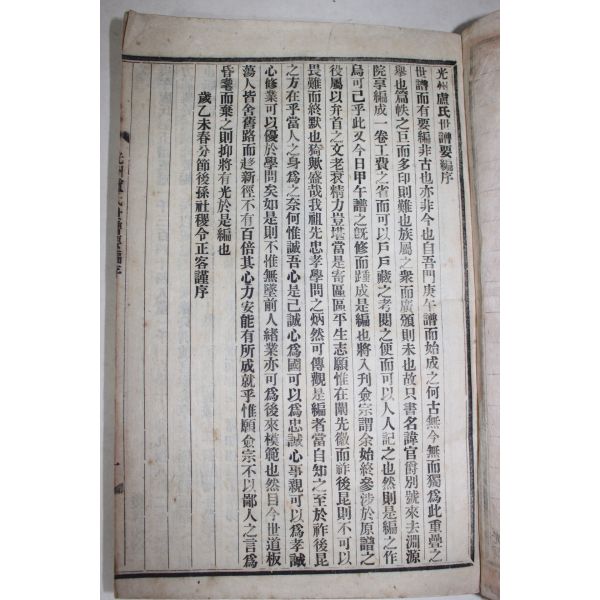 光州盧氏世譜要編序
世譜而有要編非古也亦非今也自吾門庚午譜而始成之何古無今無而獨爲此重疊之
擧也篇帙之巨而多印則難也族屬之衆而廣頒則未也故只書名諱官爵別號來去淵源
院享編成一卷工費之省而可以戶戶藏之考閱之便而可以人人記之也然則是編之作
烏可已乎此又今日甲午譜之旣修而踵成是編也將入刋僉宗謂余始終參涉於原譜之
役屬以弁首之文老衰精力豈堪當是寄區區平生志願惟在闡先徽而祚後昆則不可以
畏難而終默也猗歟盛哉我祖先忠孝學問之炳然可傳觀是編者當自知之至於祚後昆
之方在乎當人之身爲之奈何惟誠吾心是已誠心爲國可以爲忠誠心事親可以爲孝誠
心修業可以優於學問矣如是則不惟無墜前人緖業亦可爲後來模範也然目今世道板
蕩人皆舍舊路而趍新徑不有百倍其心力安能有所成就乎惟願僉宗不以鄙人之言爲
昏耄而棄之則抑將有光於是編也
歲乙未春分節後孫社稷令正客謹序
光州盧氏世譜要編序
一